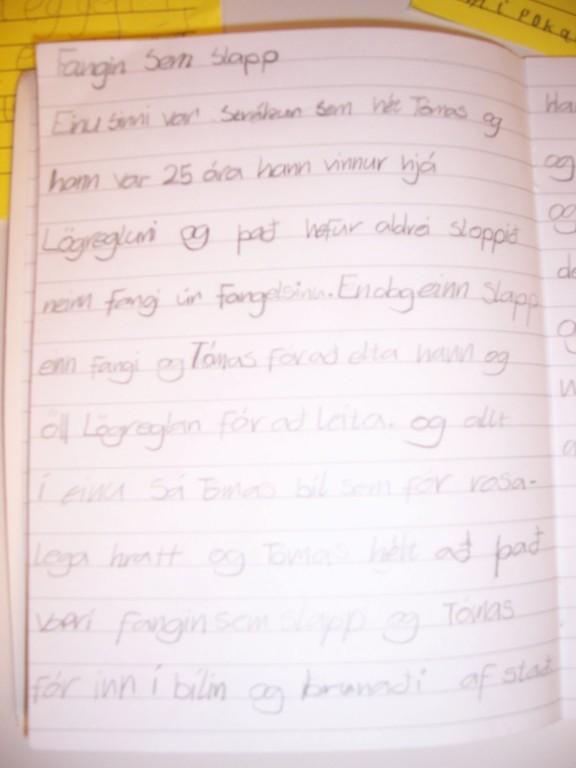 Fangin sem slapp
Einu sinni var sem hét Tómas og
hann var 25 ára hann vinnur hjá
Lögregluni og það hefur aldrei sloppið
neinn fangi úr fangelsinu. slapp
enn fangi og Tómas fór að elta hann og
öll Lögreglan fór að leita. og allt
í einu sá Tómas bíl sem fór rosa-
lega hratt og Tómas hélt að það
væri fangin sem slappi og Tómas
fór inn í bílin og brunaði af stað
Ha
og
og